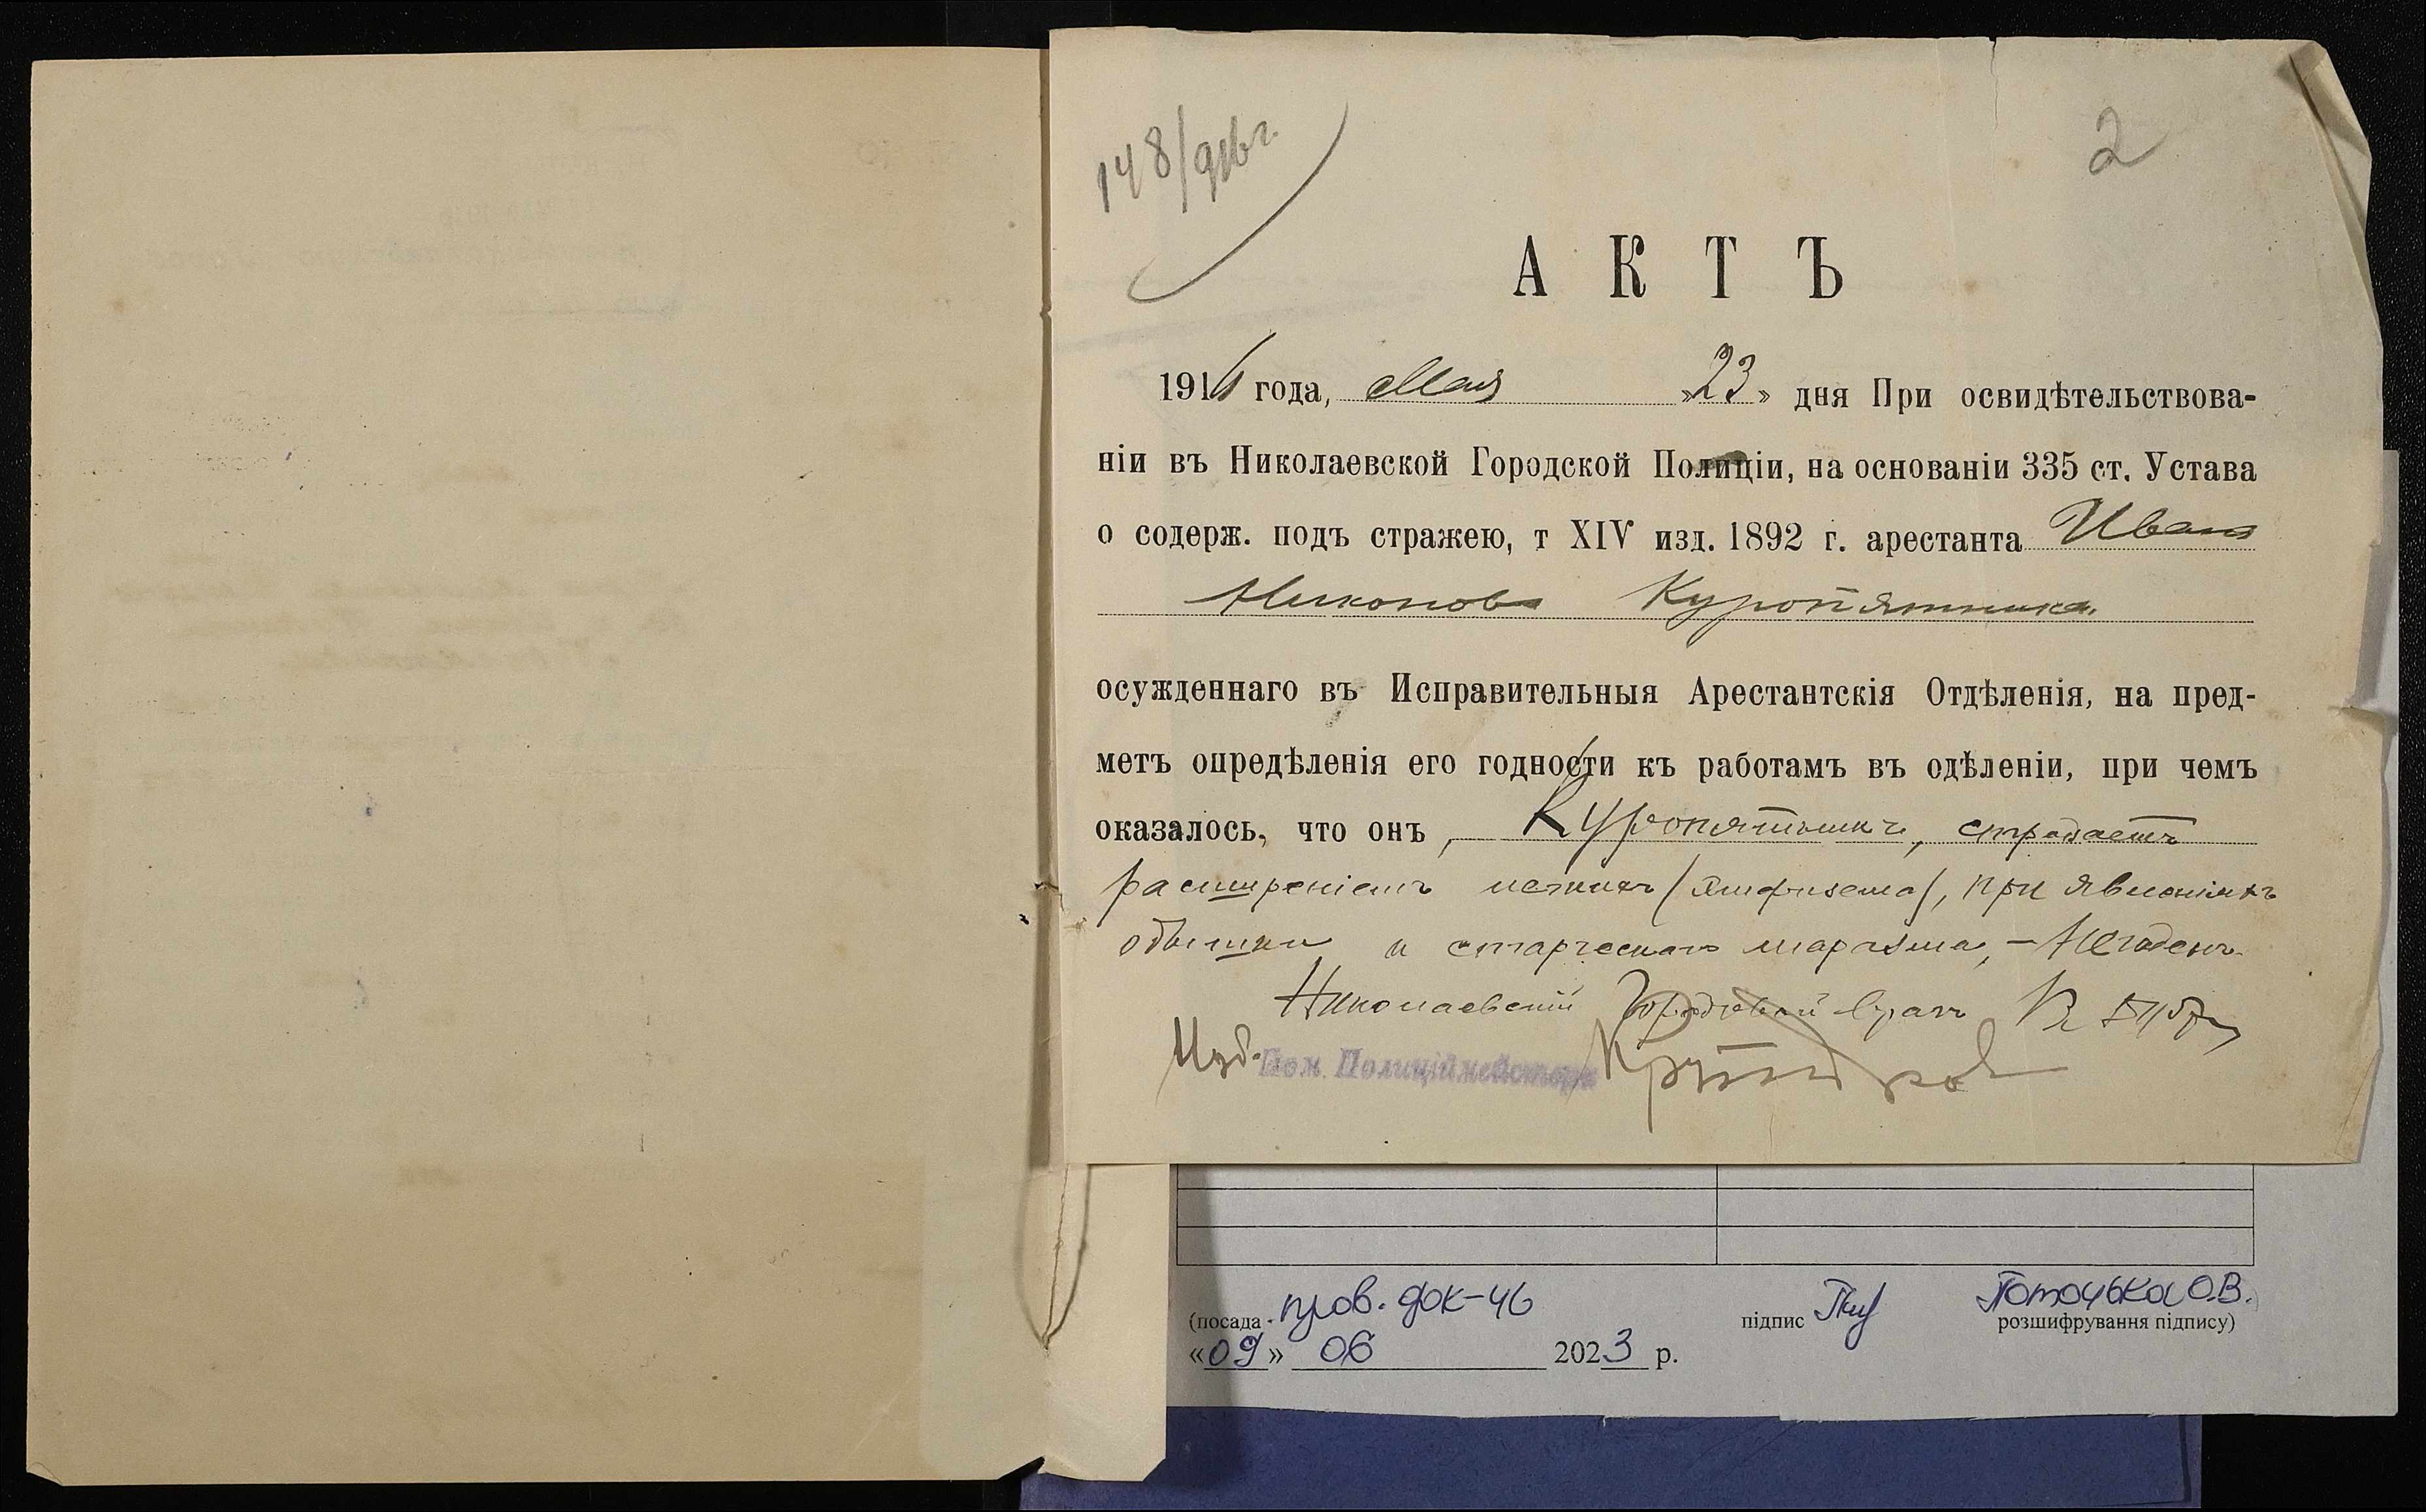 148/916 г.
2
АКТЪ
1916 года, Мая "23" дня При освидѣтельствова-
ніи въ Николаевской Городской Полиціи, на основаніи 335 ст. Устава
о содерж. подъ стражею, т XIV изд. 1892 г. арестанта Ивана
Никонова Куропятника
осужденнаго въ Исправительныя Арестантскія Отдѣленія, на пред-
метъ опредѣленія его годности къ работамъ въ одѣленіи, при чемъ
оказалось, что онъ, Куропятникъ, страдаетъ
расширеніемъ легкихъ (эмфизема), при явленіяхъ
одышки и старческаго маразма, – Негоденъ.
Николаевскій Городовой врачъ
Пом. Полиціймейстера
(посада пров. док-ч6 підпис Поточька О.В.
розшифрування підпису)
«09» 06 2023 р.